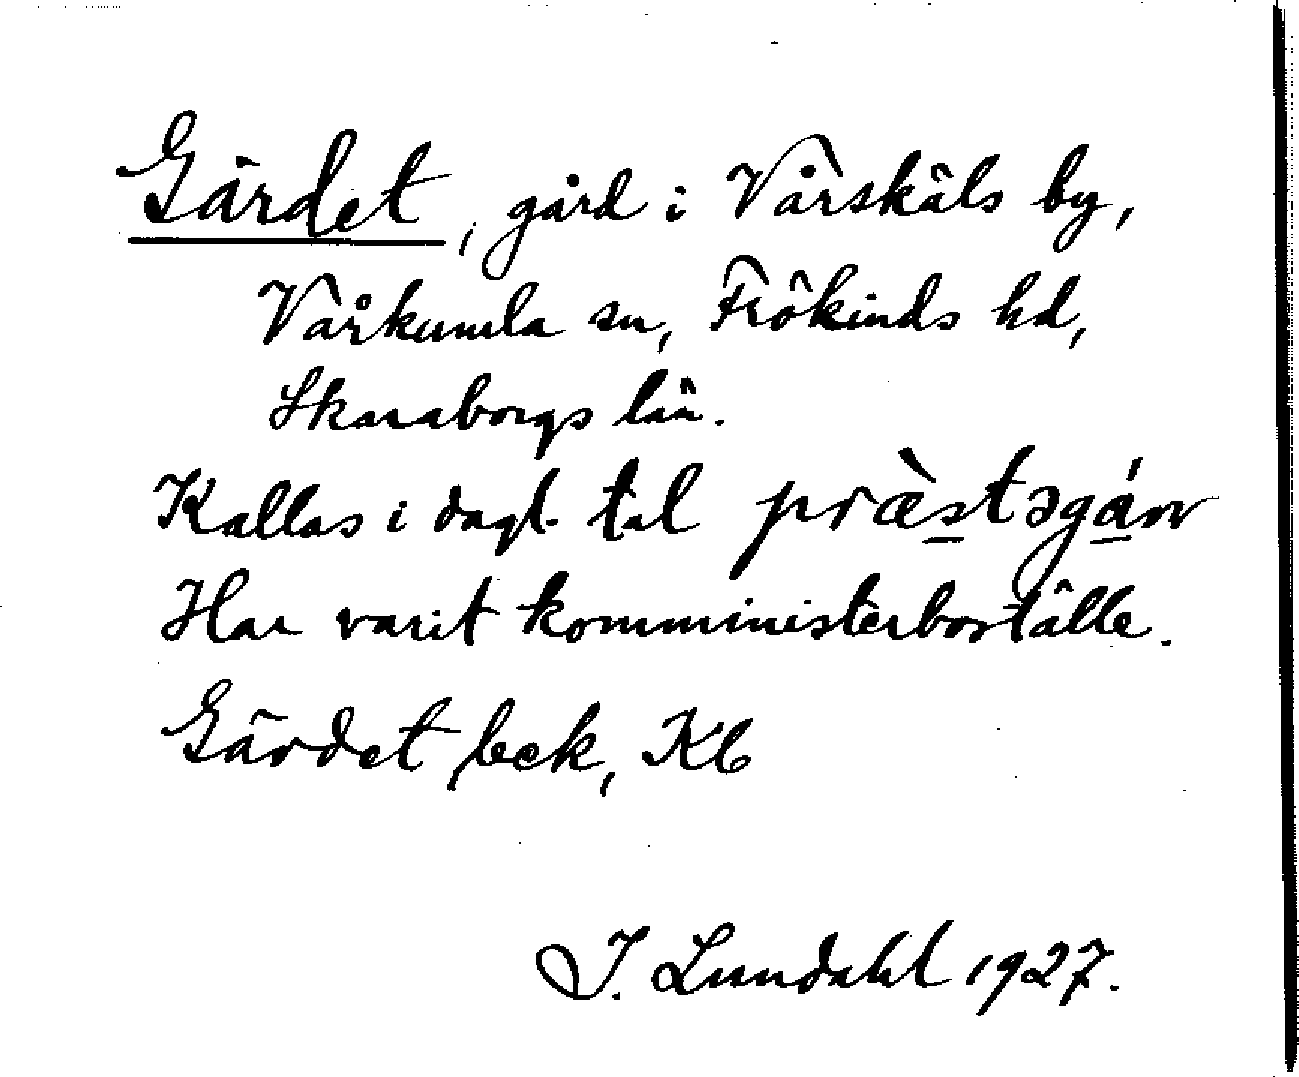 Gärdet, gård i Vårskäls by,
Vårkumla sn, Frökinds hd,
Skaraborgs län.
Kallas i dagl. tal præ̀stsgán
Har varit komministerboställe.
Gärdet beck, Kb
J. Lundahl 1927.